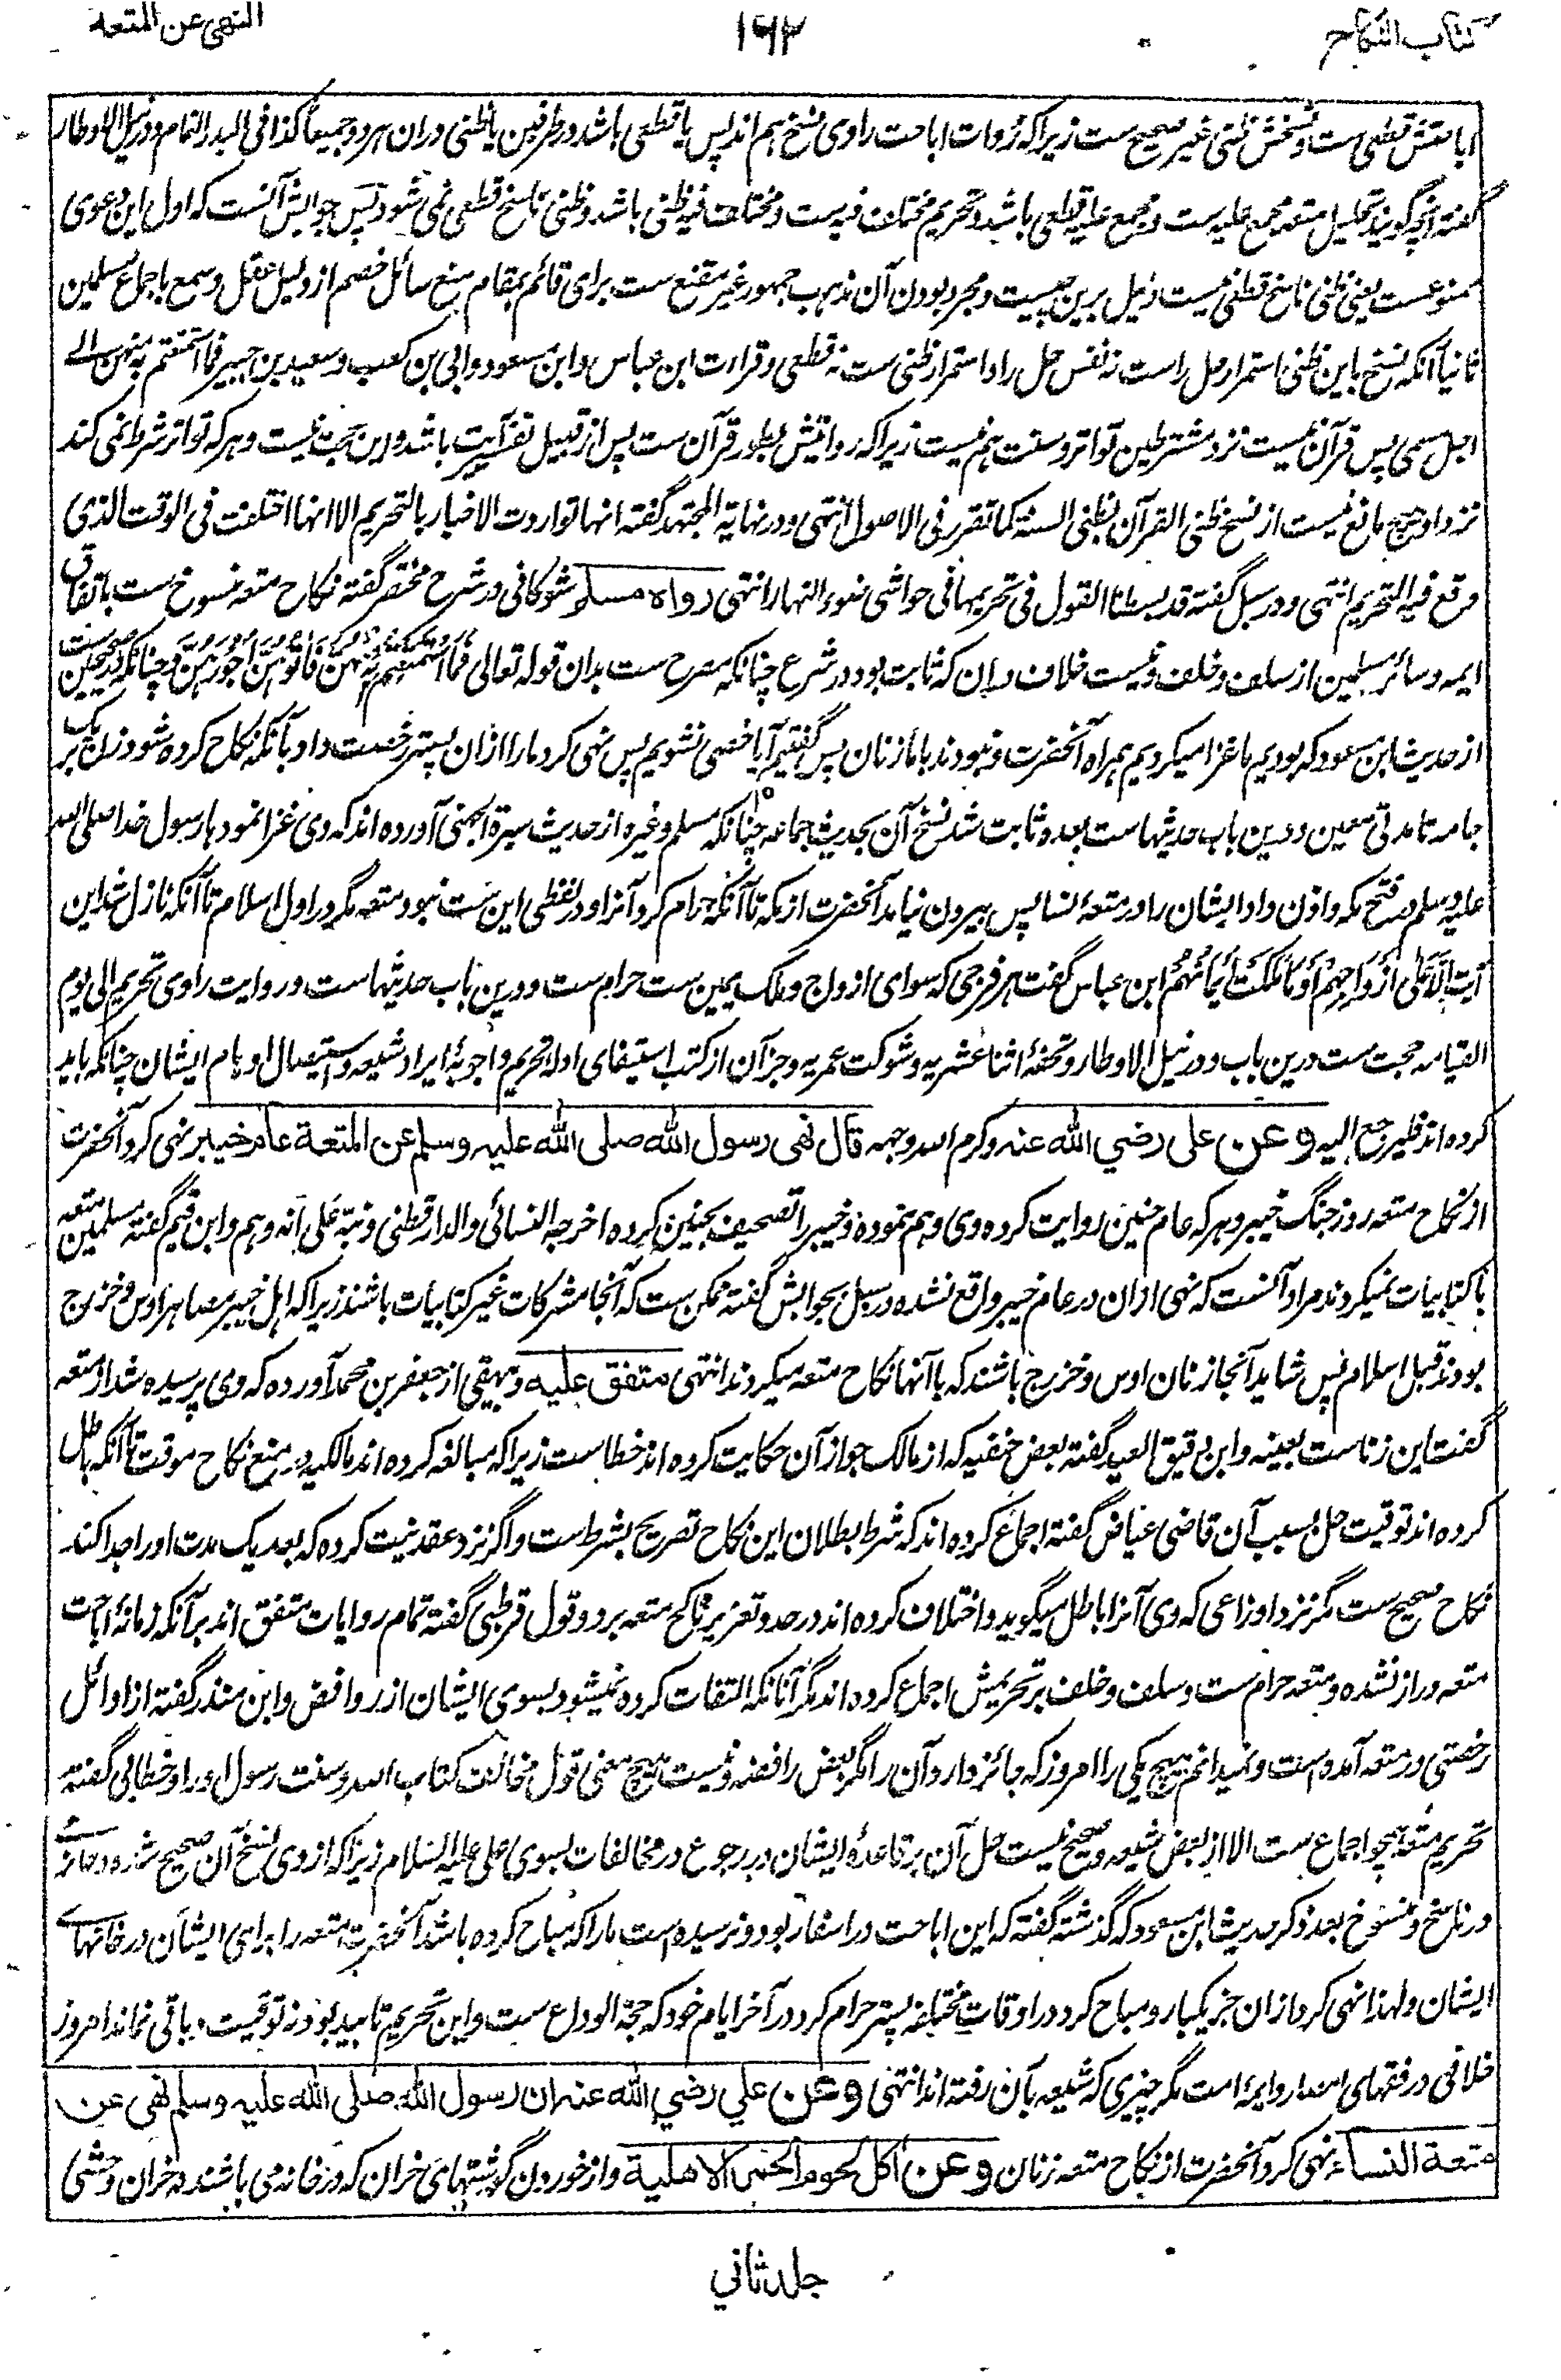 کتاب النکاح
۱۶۲
النهی عن المتعة
اباحتش قطعی ست و نسخش ظنی غیر صحیح ست زیرا که روات اباحت راوی نسخ هم اند پس یا قطعی باشد در طرفین یا ظنی دران هر دو جمیعا کذا فی البدر التمام و در نیل الاوطار
گفته آنچه گویند تحلیل متعه مجمع علیه ست و مجمع علیه قطعی باشد و تحریم مختلف فیه ست و مختلف فیه ظنی باشد و ظنی ناسخ قطعی نمی شود پس جوابش آنست که اول این دعوی
ممنوعست یعنی ظنی ناسخ قطعی نیست دلیل برین چیست و مجرد بودن آن مذهب جمهور غیر مقنع ست برای قائم بمقام منع سائل خصم از دلیل عقل و سمع باجماع مسلمین
ثانیا آنکه نسخ باین ظنی استمرار حل راست نه نفس حل را و استمرار ظنی ست نه قطعی و قراءت ابن عباس و ابن مسعود و ابی بن کعب و سعید بن جبیر فما استمتعتم به منهن الے
اجل مسمی پس قرآن نیست نزد مشترطین تواتر و سنت هم نیست زیرا که روایتش بطور قرآن ست پس از قبیل تفسیر آیت باشد و این حجت نیست و هر که تواتر شرط نمی کند
نزد او هیچ مانع نیست از نسخ ظنی القرآن بظنی السنة کما تقرر فی الاصول انتهی و در نهایة المجتهد گفته انها تواردت الاخبار بالتحریم الا انها اختلفت فی الوقت الذی
وقع فیه التحریم انتهی و در سبل گفته قد بسطنا القول فی تحریمها فی حواشی ضوء النهار انتهی رواه مسلم شوکانی در شرح مختصر گفته نکاح متعه منسوخ ست باتفاق
ایمه و سائر مسلمین از سلف و خلف و نیست خلاف دران که ثابت بود در شرع چنانکه مصرح ست بدان قوله تعالی فَمَا اسْتَمْتَعْتُمْ بِهِ مِنْهُنَّ فَآتُوهُنَّ أُجُورَهُنَّ و چنانکه در صحیحین ست
از حدیث ابن مسعود که بودیم ما غزا میکردیم همراه آنحضرت و نبودند با ما زنان پس گفتیم آیا خصی نشویم پس نهی کرد ما را ازان پستر رخصت داد بآنکه نکاح کرده شود زن یک بر
جامه تا مدتی معین و درین باب حدیثهاست بعده ثابت شد نسخ آن بحدیث جماعه چنانکه مسلم و غیره از حدیث سبرة الجهنی آورده اند که وی غزا نمود با رسول خدا صلی الله
علیه وسلم در فتح مکه و اذن داد ایشان را در متعۀ نسا پس بیرون نیامد آنحضرت از مکه تا آنکه حرام کرد آنرا و در لفظی این ست نبود متعه مگر در اول اسلام تا آنکه نازل شد این
آیت إِلَّا عَلَى أَزْوَاجِهِمْ أَوْ مَا مَلَكَتْ أَيْمَانُهُمْ ابن عباس گفت هر فرجی که سوای ازواج و ملک یمین ست حرام ست و درین باب حدیثهاست و روایت راوی تحریم الی یوم
القیامه حجت ست درین باب و در نیل الاوطار و تحفۀ اثنا عشریه و شوکت عمریه و جز آن از کتب استیفای ادلۀ تحریم و اجوبۀ ایراد شیعه و استیصال اوهام ایشان چنانکه باید
کرده اند فلیرجع الیه وعن علی رضي الله عنه وکرم الله وجهه قال نهى رسول الله صلى الله عليه وسلم عن المتعة عام خيبر نهی کرد آنحضرت
از نکاح متعه روز جنگ خیبر و هر که عام حنین روایت کرده وی وهم نموده و خیبر را تصحیف بحنین کرده اخرجه النسائی و الدارقطنی و نبّه علی انه وهم و ابن قیم گفته مسلمین متعه
با کتابیات نمیکردند مراد آنست که نهی ازان در عام خیبر واقع نشده در سبل بجوابش گفته ممکن ست که آنجا مشرکات غیر کتابیات باشند زیرا که اهل خیبر مصاهر اوس و خزرج
بودند قبل اسلام پس شاید آنجا زنان اوس و خزرج باشند که با آنها نکاح متعه میکردند انتهی متفق علیه و بیهقی از جعفر بن محمد آورده که وی پرسیده شد از متعه
گفت این زناست بعینه و ابن دقیق العید گفته بعض حنفیه که از مالک جواز آن حکایت کرده اند خطاست زیرا که مبالغه کرده اند مالکیه در منع نکاح موقت تا آنکه باطل
کرده اند توقیت حل بسبب آن قاضی عیاض گفته اجماع کرده اند که شرط بطلان این نکاح تصریح بشرط ست و اگر نزد عقد نیت کرده که بعد یک مدت او را جدا کند
نکاح صحیح ست مگر نزد اوزاعی که وی آنرا باطل میگوید و اختلاف کرده اند در حد و تعزیر ناکح متعه بر دو قول قرطبی گفته تمام روایات متفق اند برآنکه زمانۀ اباحت
متعه دراز نشده و متعه حرام ست و سلف و خلف بر تحریمش اجماع کرده اند مگر آنانکه التفات کرده نمیشود بسوی ایشان از روافض و ابن منذر گفته از اوائل
رخصتی در متعه آمده ست و نمیدانم هیچ یکی را امروز که جائز دارد آن را مگر بعض رافضه و نیست هیچ معنی قول مخالف کتاب الله و سنت رسول او را و خطابی گفته
تحریم متعه همچو اجماع ست الا از بعض شیعه و صحیح نیست حل آن بر قاعدۀ ایشان در رجوع در مخالفات بسوی علی علیه السلام زیرا که از وی نسخ آن صحیح شده و حازمے
در ناسخ و منسوخ بعد ذکر حدیث ابن مسعود که گذشته گفته که این اباحت در اسفار بود و نرسیده ست ما را که مباح کرده باشد آنحضرت متعه را برای ایشان در خانهاے
ایشان ولهذا نهی کرد ازان جز یکبار و مباح کرد در اوقات مختلفه پستر حرام کرد در آخر ایام خود که حجة الوداع ست و این تحریم تابید بود نه توقیت و باقی نماند امروز
خلافی در فقهای امصار و ایمۀ امت مگر چیزی که شیعه بآن رفته اند انتهی وعن علي رضي الله عنه ان رسول الله صلى الله عليه وسلم نهى عن
متعة النساء نهی کرد آنحضرت از نکاح متعه زنان وعن اکل لحوم الحمر الاهلية و از خوردن گوشتهای خران که در خانه می باشند نه خران وحشی
جلد ثاني